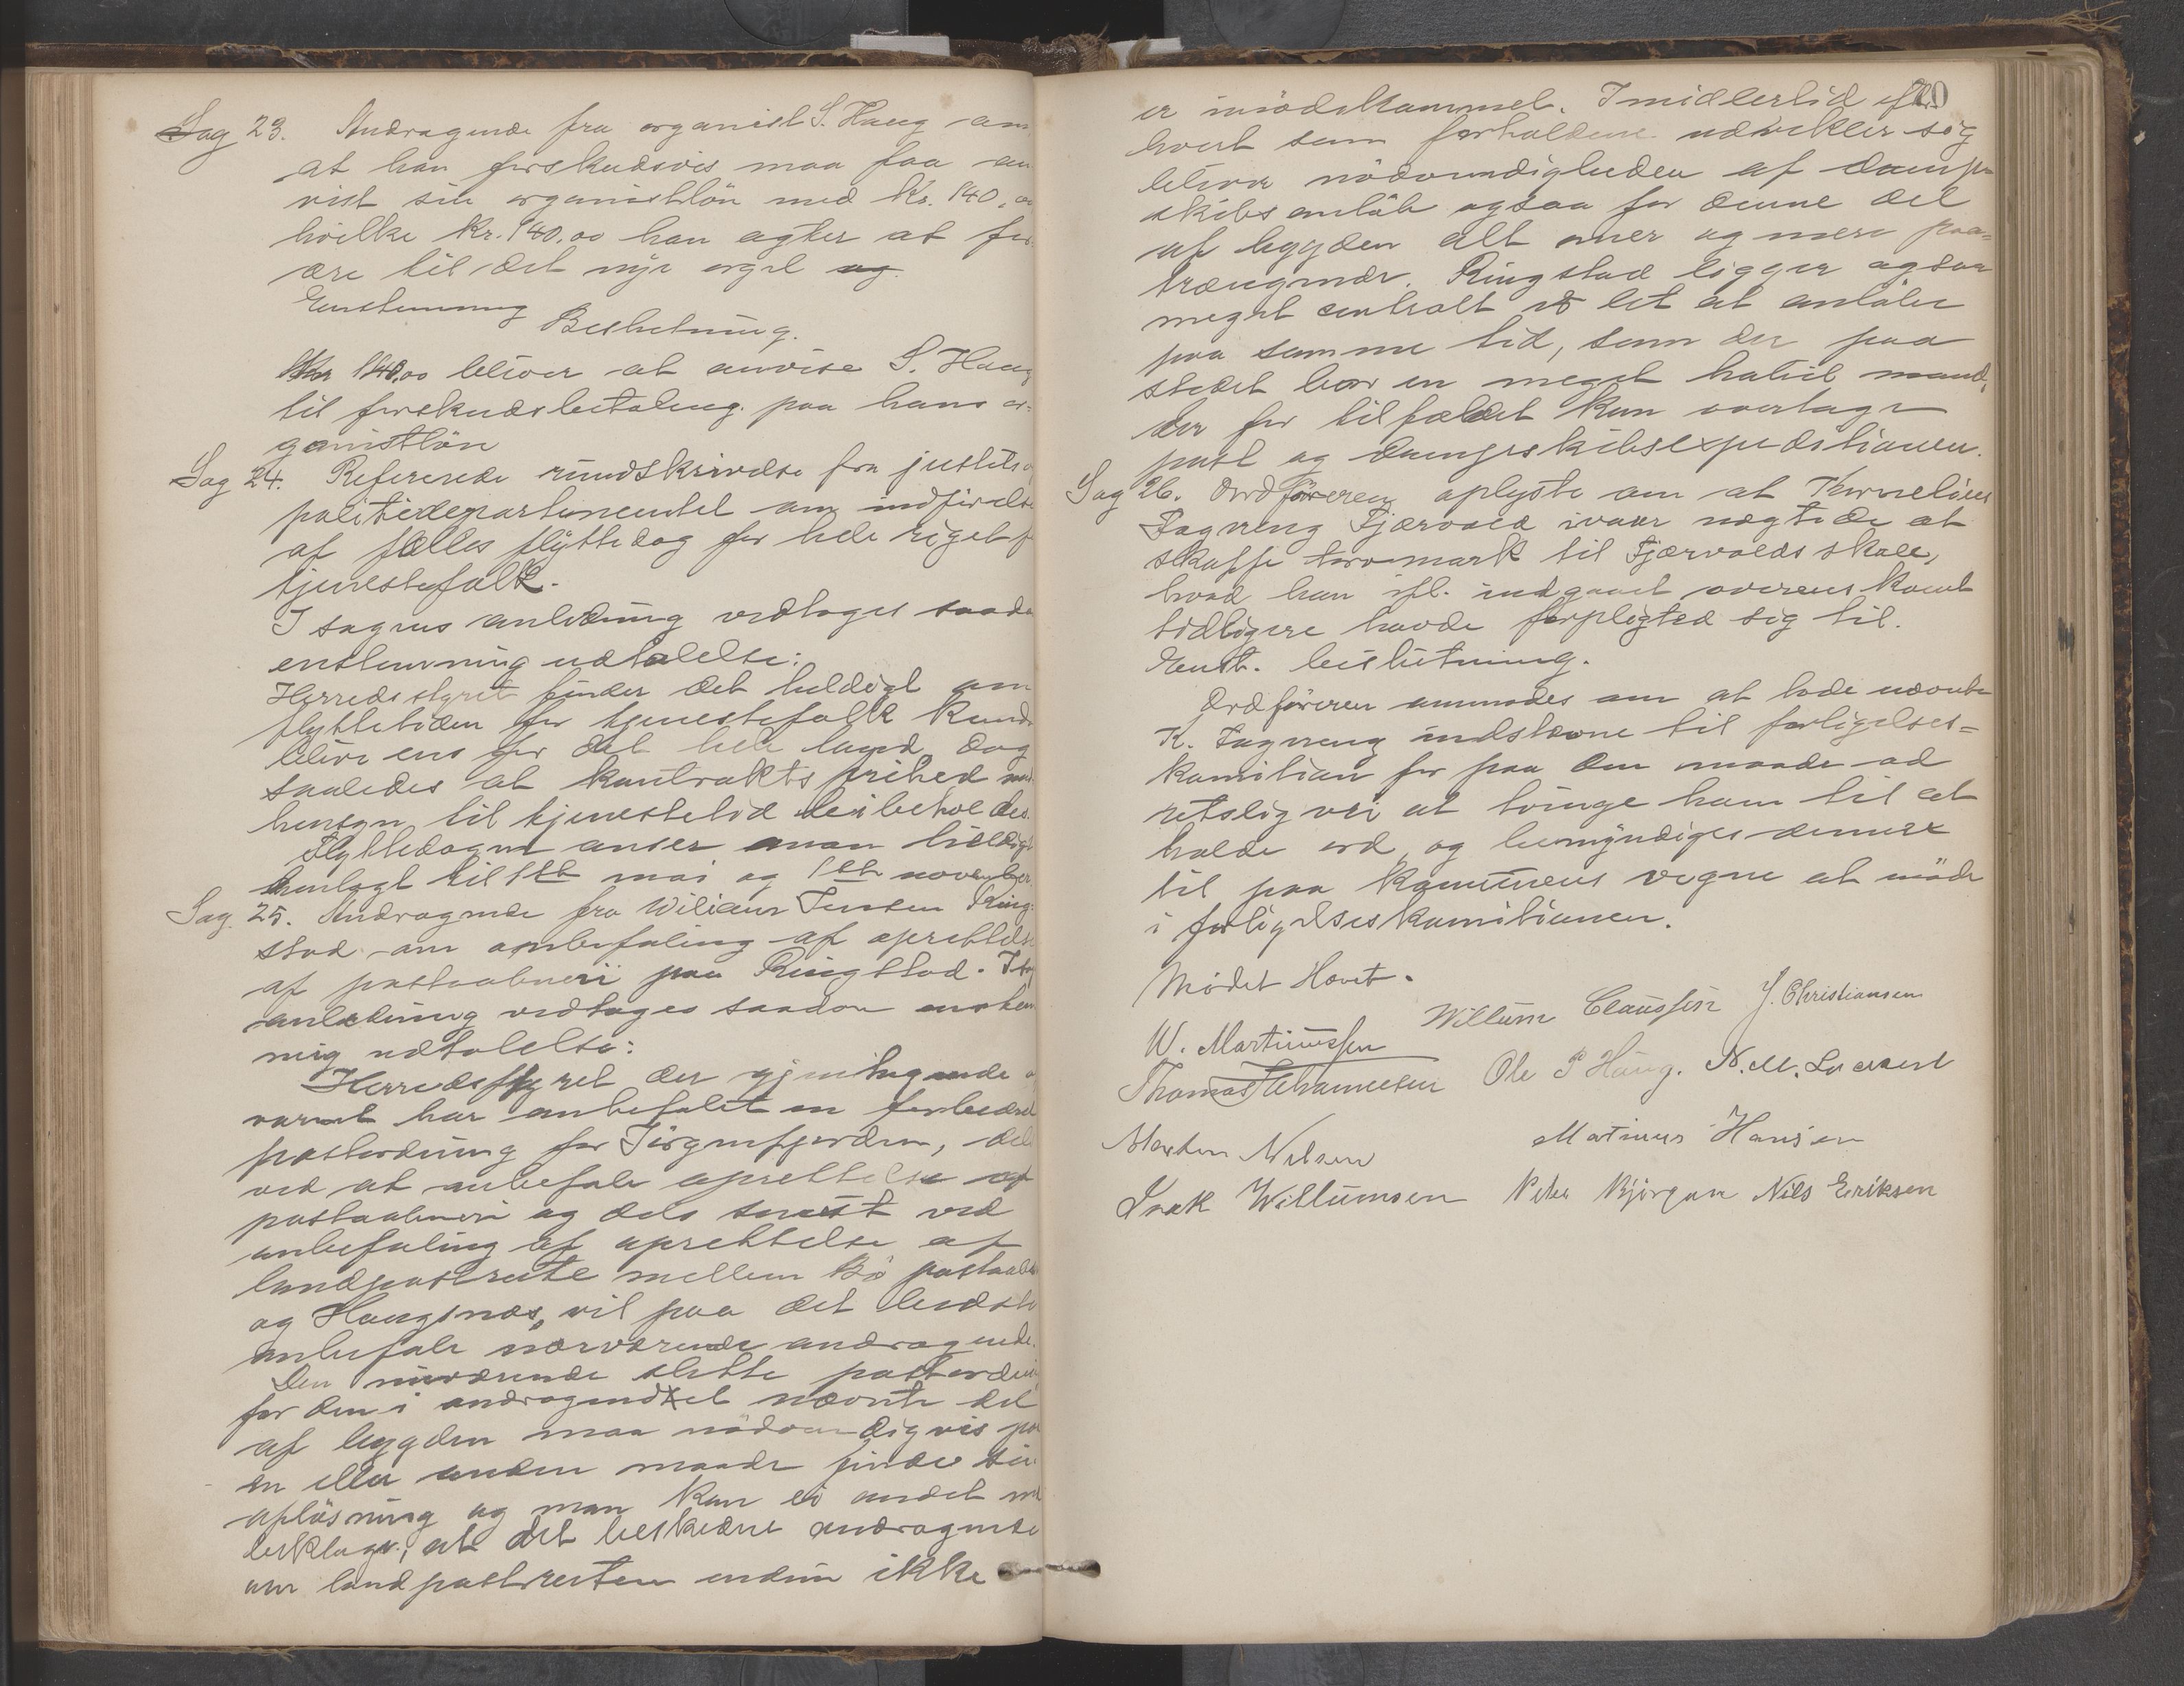 Sag 23. Andragende fra organist S. Haug om
at han forskudsvis maa faa an
vist sin organistlön med Kr. 140,
hvilke Kr. 140,00 han agter at for
ære til det nye orgel og
Enstemmig
Beslutning.
Kr 140,00 bliver at anvise S. Haug
til forskudsbetaling paa hans or-
ganistlön
Sag 24. Refererede rundskrivelse fra justits
politidepartementet om indförelse
af fælles flyttedag for hele riget f
tjenestefolk.
I sagens anledning vedtoges saada
enstemmig udtalelse:
Herredsstyret finder det heldigt om
flyttetiden for tjenestefolk kunde
blive ens for det hele land, dog
saaledes at kontraktsfrihed med
hensyn til tjenestetid beibeholdes.
Flyttedagene anser man heldigt
henlagt til 1ste mai og 1ste november.
Sag 25. Andragende fra Wiliam Jensen Ring-
stad om anbefaling af oprettelse
af postaabneri paa Ringstad. I sag
anledning vedtoges saadan enstem
mig udtalelse:
Herredsstyret der gjentagende
har anbefalet en forbedret
postordning for Jörgenfjorden, dels
ved at anbefale oprettelse af
postaabneri og dels senest ved
anbefaling af oprettelse af
landpostrute mellem Bö postaab
og Haugsnæs, vil paa det bedste
anbefale nærværende andragende.
Den nuværende slette postordning
for den i andragendet nævnte del
af bygden maa nödvendigvis paa
en eller anden maade finde sin
oplösning og man kan ei andet end
beklage, at det beskedne andragende
om landpostruten endnu ikke
70
er imödekommet. Imidlertid efter
hvert som forholdene udvikler sig
bliver nödvendigheden af damp-
skibsanlöb ogsaa for denne del
af bygden alt mer og mere paa-
trængende. Ringstad ligger ogsaa
meget centralt og let at anlöbe
paa samme tid, som der paa
stedet bor en meget habil mand,
der for tilfældet kan overtage
post og dampskibsexpeditionen.
Sag 26. Ordföreren oplyste om at Kornelius
Fagereng Fjærvold ivaar nægtede at
skaffe torvmark til Fjærvolds skole,
hvad han ifl. indgaaet overenskomst
tidligere havde forpligted sig til.
Enst. beslutning.
Ordföreren anmodes om at lade nævnte
K. Fagereng indstævne til forligelses-
komitian for paa den maade ad
retslig vei at tvinge ham til at
holde ord, og bemyndiges denne
til paa kommunens vegne at möde
i forligelseskomitionen.
Mødet Hævet.
W. Martinussen Willum Claussen J. Christiansen
Thomas Johannesen Ole P Haug. N. M.
Morten Nilsen Martinus Hansen
Isak Willumsen Peder Björgan Nils Eriksen